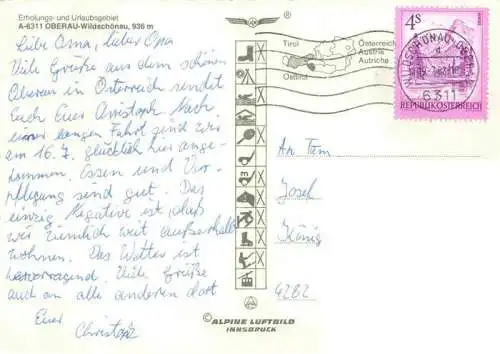 Erholungs- und Urlaubsgebiet
A-6311 OBERAU-Wildschönau, 936 m
Liebe Oma, lieber Opa
Viele Grüße aus dem schönen
Oberau in Österreich sendet
Euch Euer Christoph. Nach
einer langen Fahrt sind wir
am 16.7. glücklich hier ange-
kommen. Essen und Ver-
pflegung sind gut. Das
einzig Negative ist, daß
wir ziemlich weit außerhalb
wohnen. Das Wetter ist
hervorragend. Viele Grüße
auch an alle anderen dort
Euer
Christoph
®
Tirol
Osttirol
Österreich
Austria
Autriche
4S
REPUBLIK ÖSTERREICH
WILDSCHÖNAU-OBERAU
6311
An Fam.
Josef
König
4282
© ALPINE LUFTBILD
INNSBRUCK